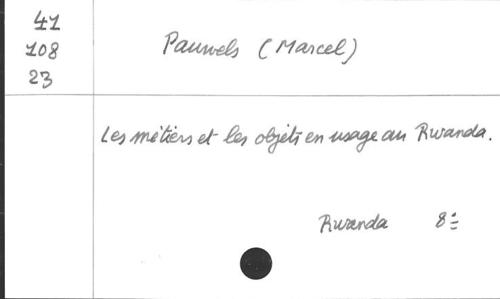 41
108
23
Pauwels (Marcel)
Les métiers et les objets en usage au Rwanda.
Rwanda 8°